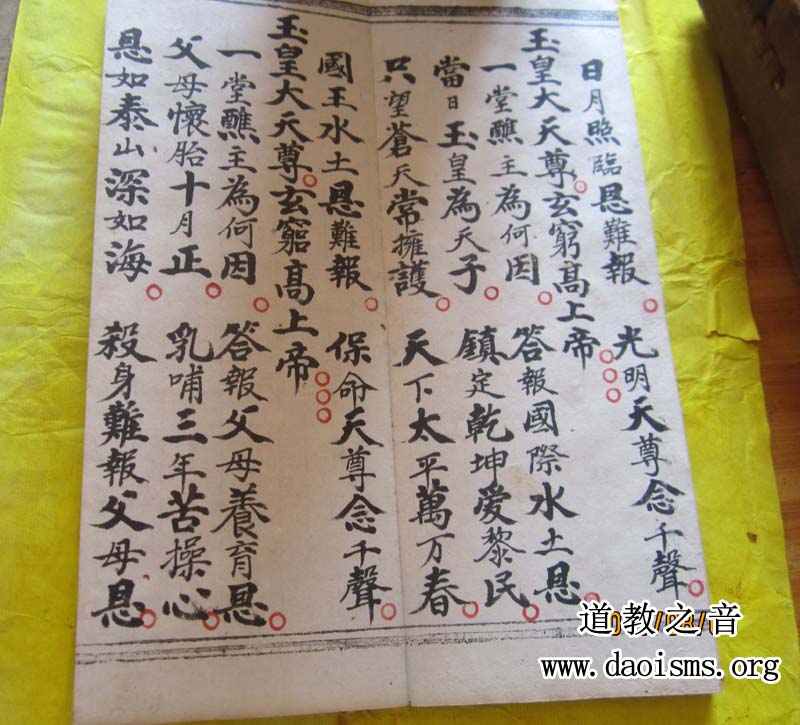 日月照臨恩難報 光明天尊念千聲
玉皇大天尊玄窮高上帝
一堂醮主為何因 答報國際水土恩
當日玉皇為天子 鎮定乾坤愛黎民
只望蒼天常擁護 天下太平萬万春
國王水土恩難報 保命天尊念千聲
玉皇大天尊玄窮高上帝
一堂醮主為何因 答報父母養育恩
父母懷胎十月正 乳哺三年苦操心
恩如泰山深如海 殺身難報父母恩
道教之音
www.daoisms.org